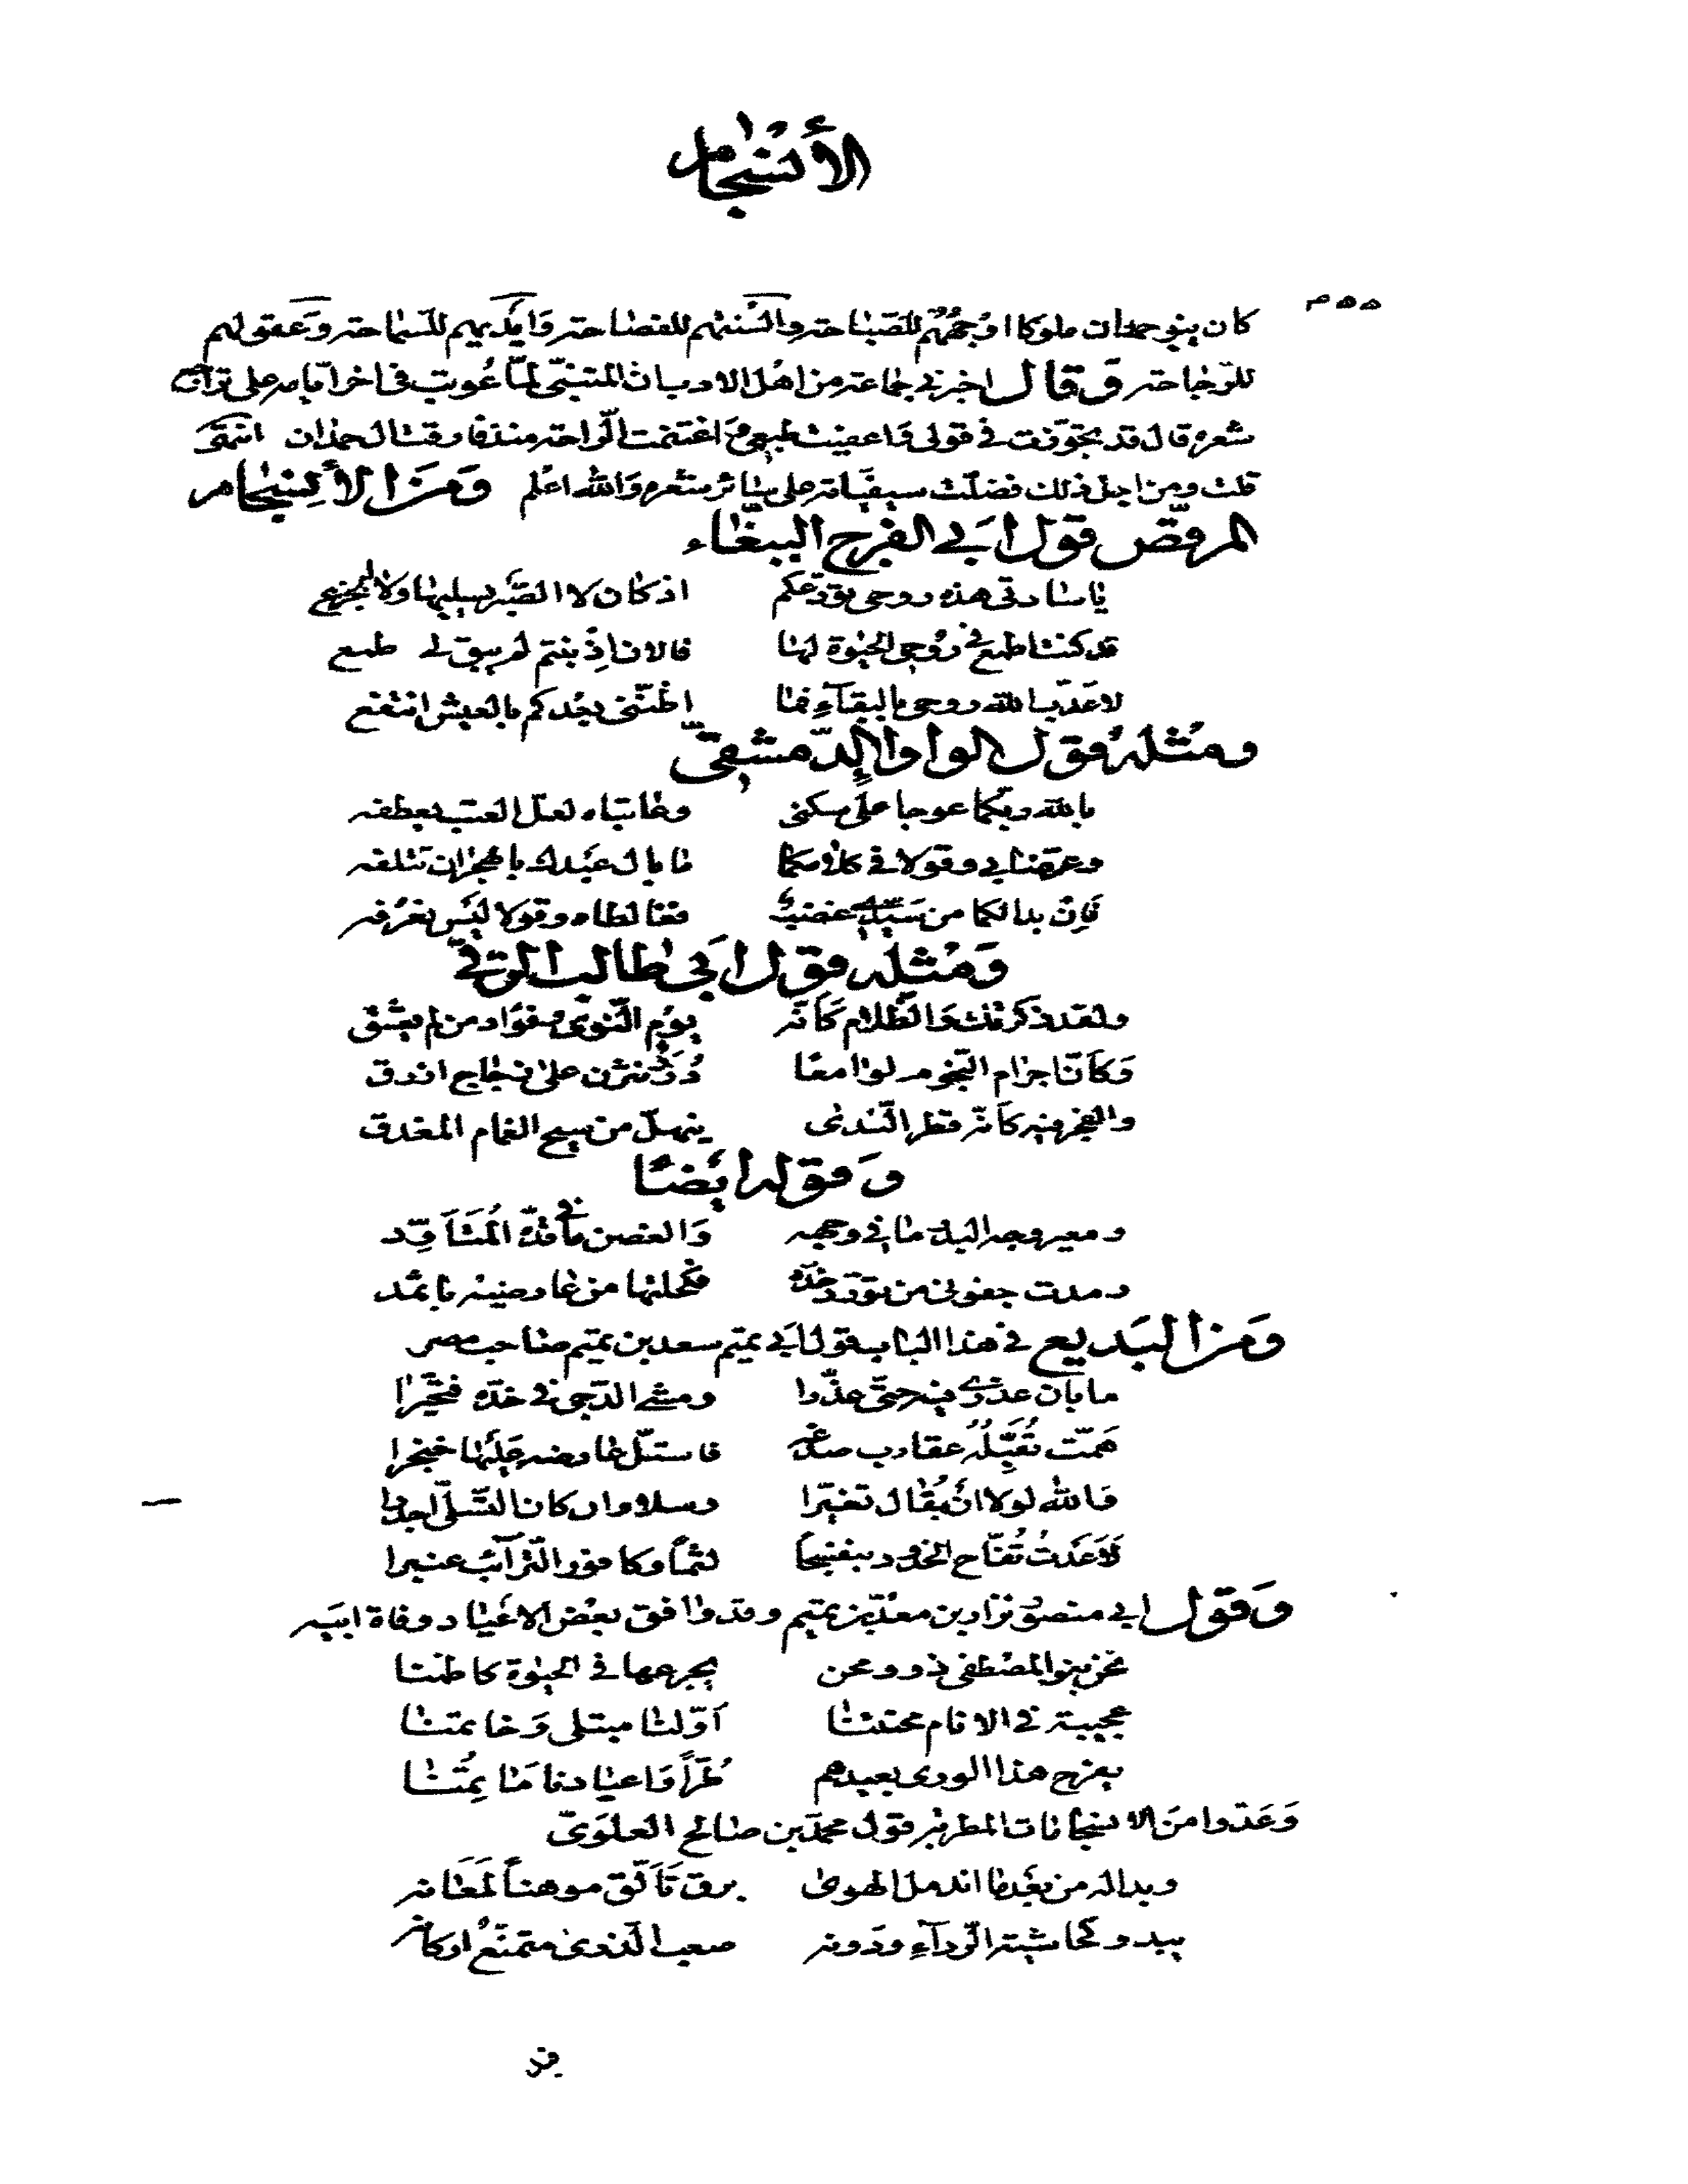 الأنسجام
كان بنو حمدان ملوكا اوجههم للصباحة والسنتهم للفصاحة وايديهم للسماحة وعقولهم
للرجاحة وقال اخبرني جماعة من اهل الادب ان المتنبي لما عوتب في اخر ايامه على تراجع
شعره قال قد تجوزت في قولي واعفيت طبعي واغتنمت الراحة منذ فارقت ال حمدان انتهى
قلت ومن اجل ذلك فضلت سيفياته على سائر شعره والله اعلم ومن الأنسجام
المرقص قول ابي الفرج الببغاء
يا سادتي هذه روحي تودعكم اذ كان لا الصبر يسليها ولا الجزع
قد كنت اطمع في روح الحيوة لها فالان اذ بنتم لم يبق لي طمع
لا عذب الله روحي بالبقاء فما اظنني بعدكم بالعيش انتفع
ومثله قول الواوا الدمشقي
بالله ربكما عوجا على سكني وعاتباه لعل العتب يعطفه
وعرضا بي وقولا في كلامكما ما بال عبدك بالهجران تتلفه
فان بدا لكما من سيدي غضب فغالطاه وقولا ليس نعرفه
ومثله قول ابي طالب الرقي
ولقد ذكرتك والظلام كأنه يوم النوى وفؤاد من لم يعشق
وكأن اجرام النجوم لوامعا درر نثرن على زجاج ازرق
والفجر فيه كأنه قطر الندى ينهل من سح الغمام المغدق
وقوله ايضا
ومعير وجه البدر ما في وجهه والغصن ما في قده المتأود
رمدت جفوني من تورد خده فكحلتها من عارضيه باثمد
ومن البديع في هذا الباب قول ابي تميم سعد بن تميم صاحب مصر
ما بان عذري فيه حتى عذرا ومشى الدجى في خده فتحيرا
همت تقبله عقارب صدغه فاستل عارضه عليها خنجرا
والله لولا ان يقال تغيرا وسلا وان كان التسلي اجدرا
لاعدت تفاح الخدود بنفسجا لثما وكافور الترائب عنبرا
وقول ابي منصور نزار بن معد بن تميم وقد وافق بعض الاعياد وفاة ابيه
نحن بنو المصطفى ذوو محن يجرعها في الحيوة كاظمنا
عجيبة في الانام محنتنا اولنا مبتلى وخاتمنا
يفرح هذا الورى بعيدهم طرا واعيادنا مآتمنا
وعدوا من الانسجامات المطربة قول محمد بن صالح العلوي
وبدا له من بعد ما اندمل الهوى برق تألق موهنا لمعانه
يبدو كحاشية الرداء ودونه صعب الذرى متمنع اركانه